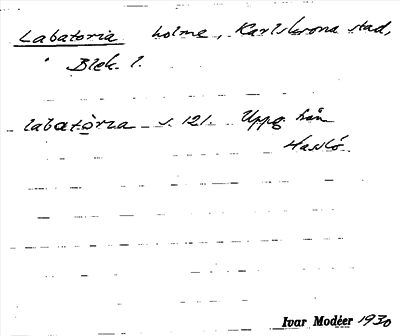 Labatoria holme, Karlskrona stad,
Blek. l.
labatòrıa s. 121. Uppg. från
Hasslö.
Ivar Modéer 1930